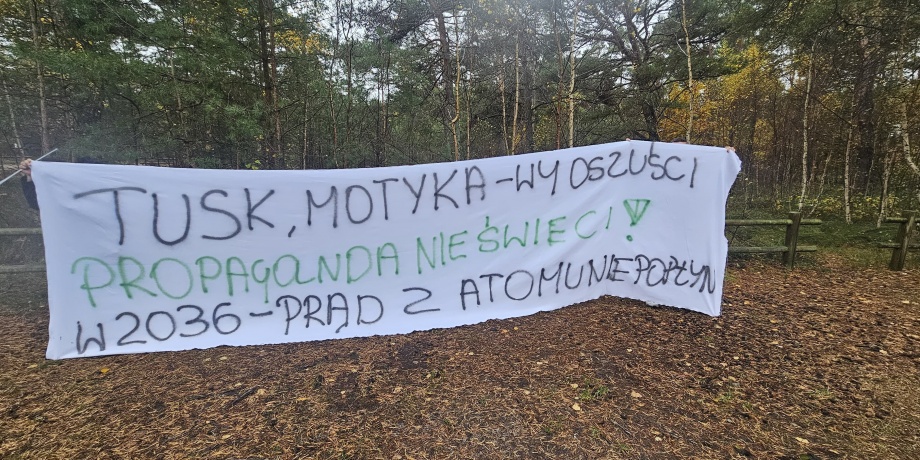 TUSK, MOTYKA - WY OSZUŚCI
PROPAGANDA NIE ŚWIECI!
W 2036 - PRĄD Z ATOMU NIE POPŁYN